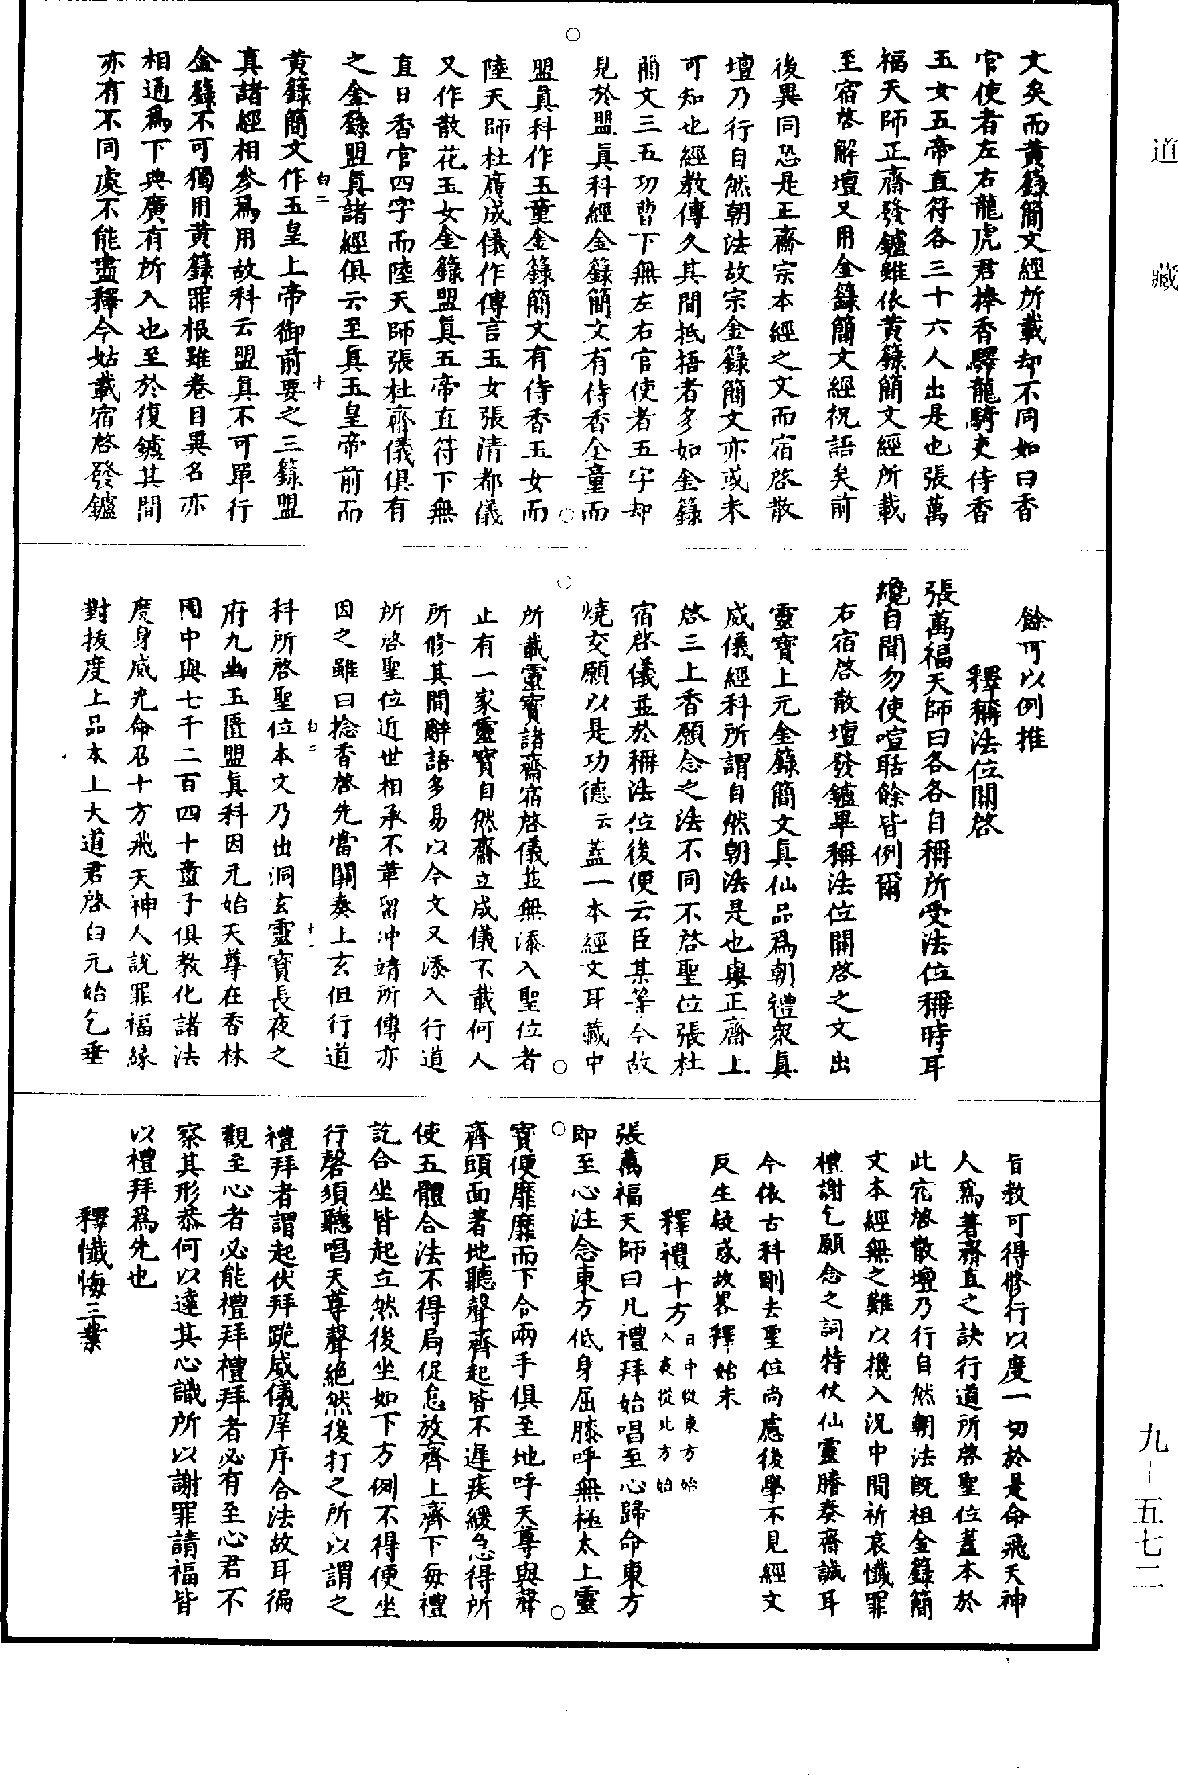 道藏
文矣而黃籙簡文經所載却不同如曰香
官使者左右龍虎君捧香驛龍騎吏侍香
玉女五帝直符各三十六人出是也張萬
福天師正齋發鑪雖依黃籙簡文經所載
至宿啓解壇又用金籙簡文經祝語矣前
後異同恐是正齋宗本經之文而宿啓散
壇乃行自然朝法故宗金籙簡文亦或未
可知也經教傳久其間抵捂者多如金籙
簡文三五功曹下無左右官使者五字却
見於盟真科經金籙簡文有侍香仝童而
盟真科作五童金籙簡文有侍香玉女而
陸天師杜廣成儀作傳言玉女張清都儀
又作散花玉女金籙盟真五帝直符下無
直日香官四字而陸天師張杜齋儀俱有
之金籙盟真諸經俱云至真玉皇帝前而
白二 十
黃籙簡文作五皇上帝御前要之三籙盟
真諸經相參爲用故科云盟真不可單行
金籙不可獨用黃籙罪根雖卷目異名亦
相通爲下典廣有所入也至於復鑪其間
亦有不同處不能盡釋今姑載宿啓發鑪
餘可以例推
釋稱法位關啓
張萬福天師曰各各自稱所受法位稱時耳
纔自聞勿使喧聒餘皆例爾
右宿啓散壇發鑪畢稱法位關啓之文出
靈寶上元金籙簡文真仙品爲朝禮衆真
威儀經科所謂自然朝法是也與正齋上
啓三上香願念之法不同不啓聖位張杜
宿啓儀並於稱法位後便云臣某等今故
燒交願以是功德云蓋一本經文耳藏中
所載靈寶諸齋宿啓儀並無添入聖位者
止有一家靈寶自然齋立成儀不載何人
所修其間辭語多易以今文又添入行道
所啓聖位近世相承不革留沖靖所傳亦
因之雖曰捻香啓先當關奏上玄但行道
白二 十一
科所啓聖位本文乃出洞玄靈寶長夜之
府九幽玉匱盟真科因元始天尊在香林
園中與七千二百四十童子俱教化諸法
度身威光命召十方飛天神人說罪福緣
對拔度上品本上大道君啓白元始乞垂
旨教可得修行以度一切於是命飛天神
人爲著齋直之訣行道所啓聖位蓋本於
此宿啓散壇乃行自然朝法旣祖金籙簡
文本經無之難以攙入況中間祈哀懺罪
禮謝乞願念之詞特仗仙靈騰奏齋誠耳
今依古科刪去聖位尚慮後學不見經文
反生疑惑故畧釋始末
釋禮十方日中從東方始入夜從北方始
張萬福天師曰凡禮拜始唱至心歸命東方
即至心注念東方低身屈膝呼無極太上靈
寶便靡靡而下合兩手俱至地呼天尊與聲
齊頭面著地聽聲齊起皆不遲疾緩急得所
使五體合法不得局促怠放齊上齊下每禮
訖合坐皆起立然後坐如下方例不得便坐
行磬須聽唱天尊聲絕然後打之所以謂之
禮拜者謂起伏拜跪威儀庠序合法故耳徧
觀至心者必能禮拜禮拜者必有至心君不
察其形恭何以達其心識所以謝罪請福皆
以禮拜爲先也
釋懺悔三業
九-五七二